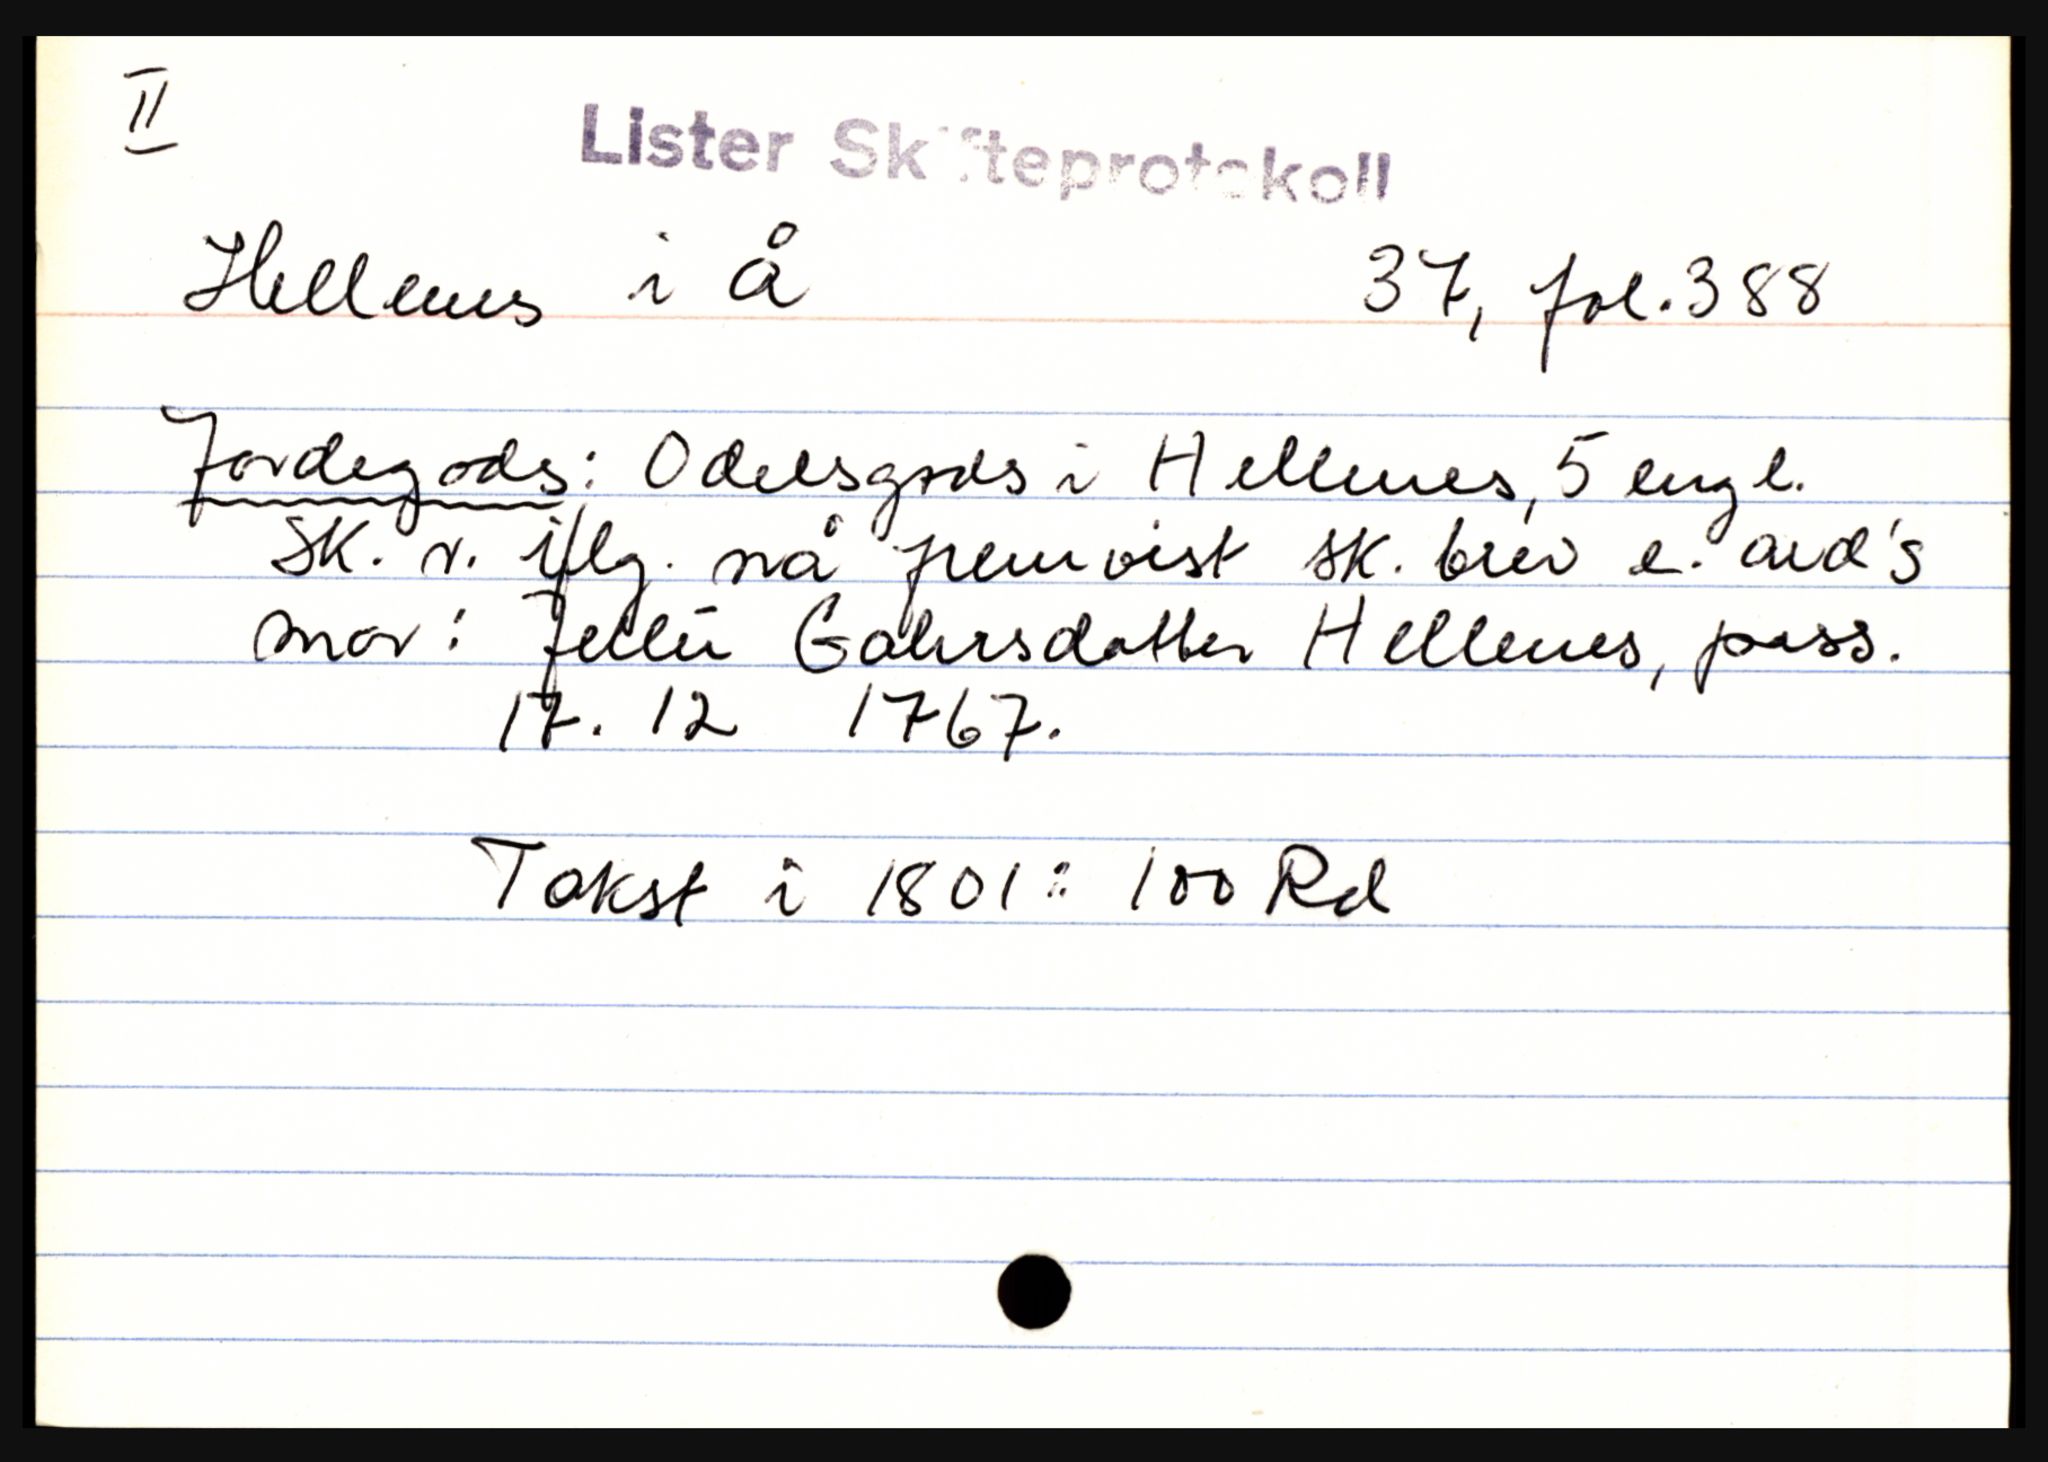 II
Lister Skifteprotokoll
Hellenes i Å 37, fol. 388
Jordegods: Odelsgods i Hellenes, 5 engl.
sk. v. iflg. nå fremvist sk. brev e. avd's
mor: Jellu Gahrsdatter Hellenes, pass.
17. 12 1767.
Takst i 1801: 100 Rd